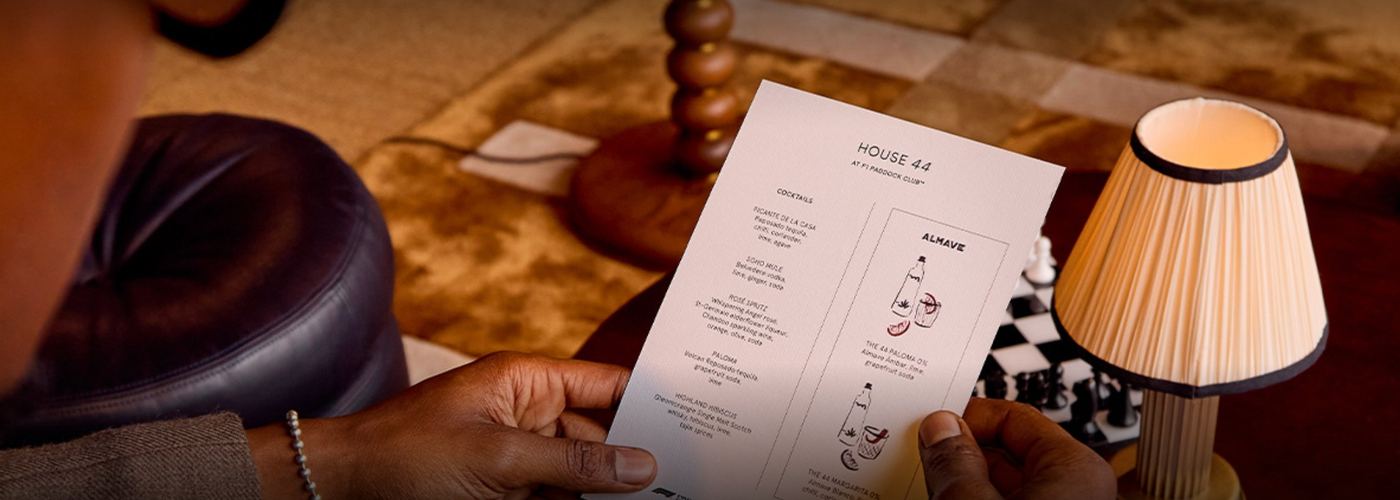 HOUSE 44
AT F1 PADDOCK CLUB™
COCKTAILS
PICANTE DE LA CASA
Reposado tequila,
chilli, coriander,
lime, agave
SOHO MULE
Belvedere vodka,
lime, ginger, soda
ROSÉ SPRITZ
Whispering Angel rosé,
St-Germain elderflower liqueur,
Chandon sparkling wine,
orange, olive, soda
PALOMA
Volcan Reposado tequila,
grapefruit soda,
lime
HIGHLAND HIBISCUS
Glenmorangie Single Malt Scotch
whisky, hibiscus, lime,
tajin spices
ALMAVE
THE 44 PALOMA 0%
Almave Ámbar, lime,
grapefruit soda
THE 44 MARGARITA 0%
Almave Blanco,